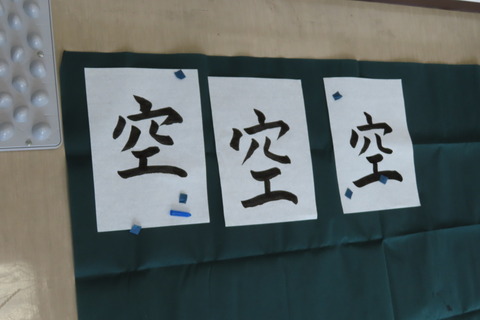 空
空
空